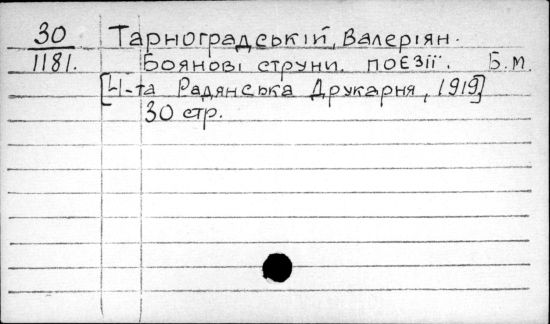 30 Тарноградський, Валеріян.
1181. Боянові струни. поєзії. Б.м.
[4-та Радянська Друкарня, 1919]
30 стр.